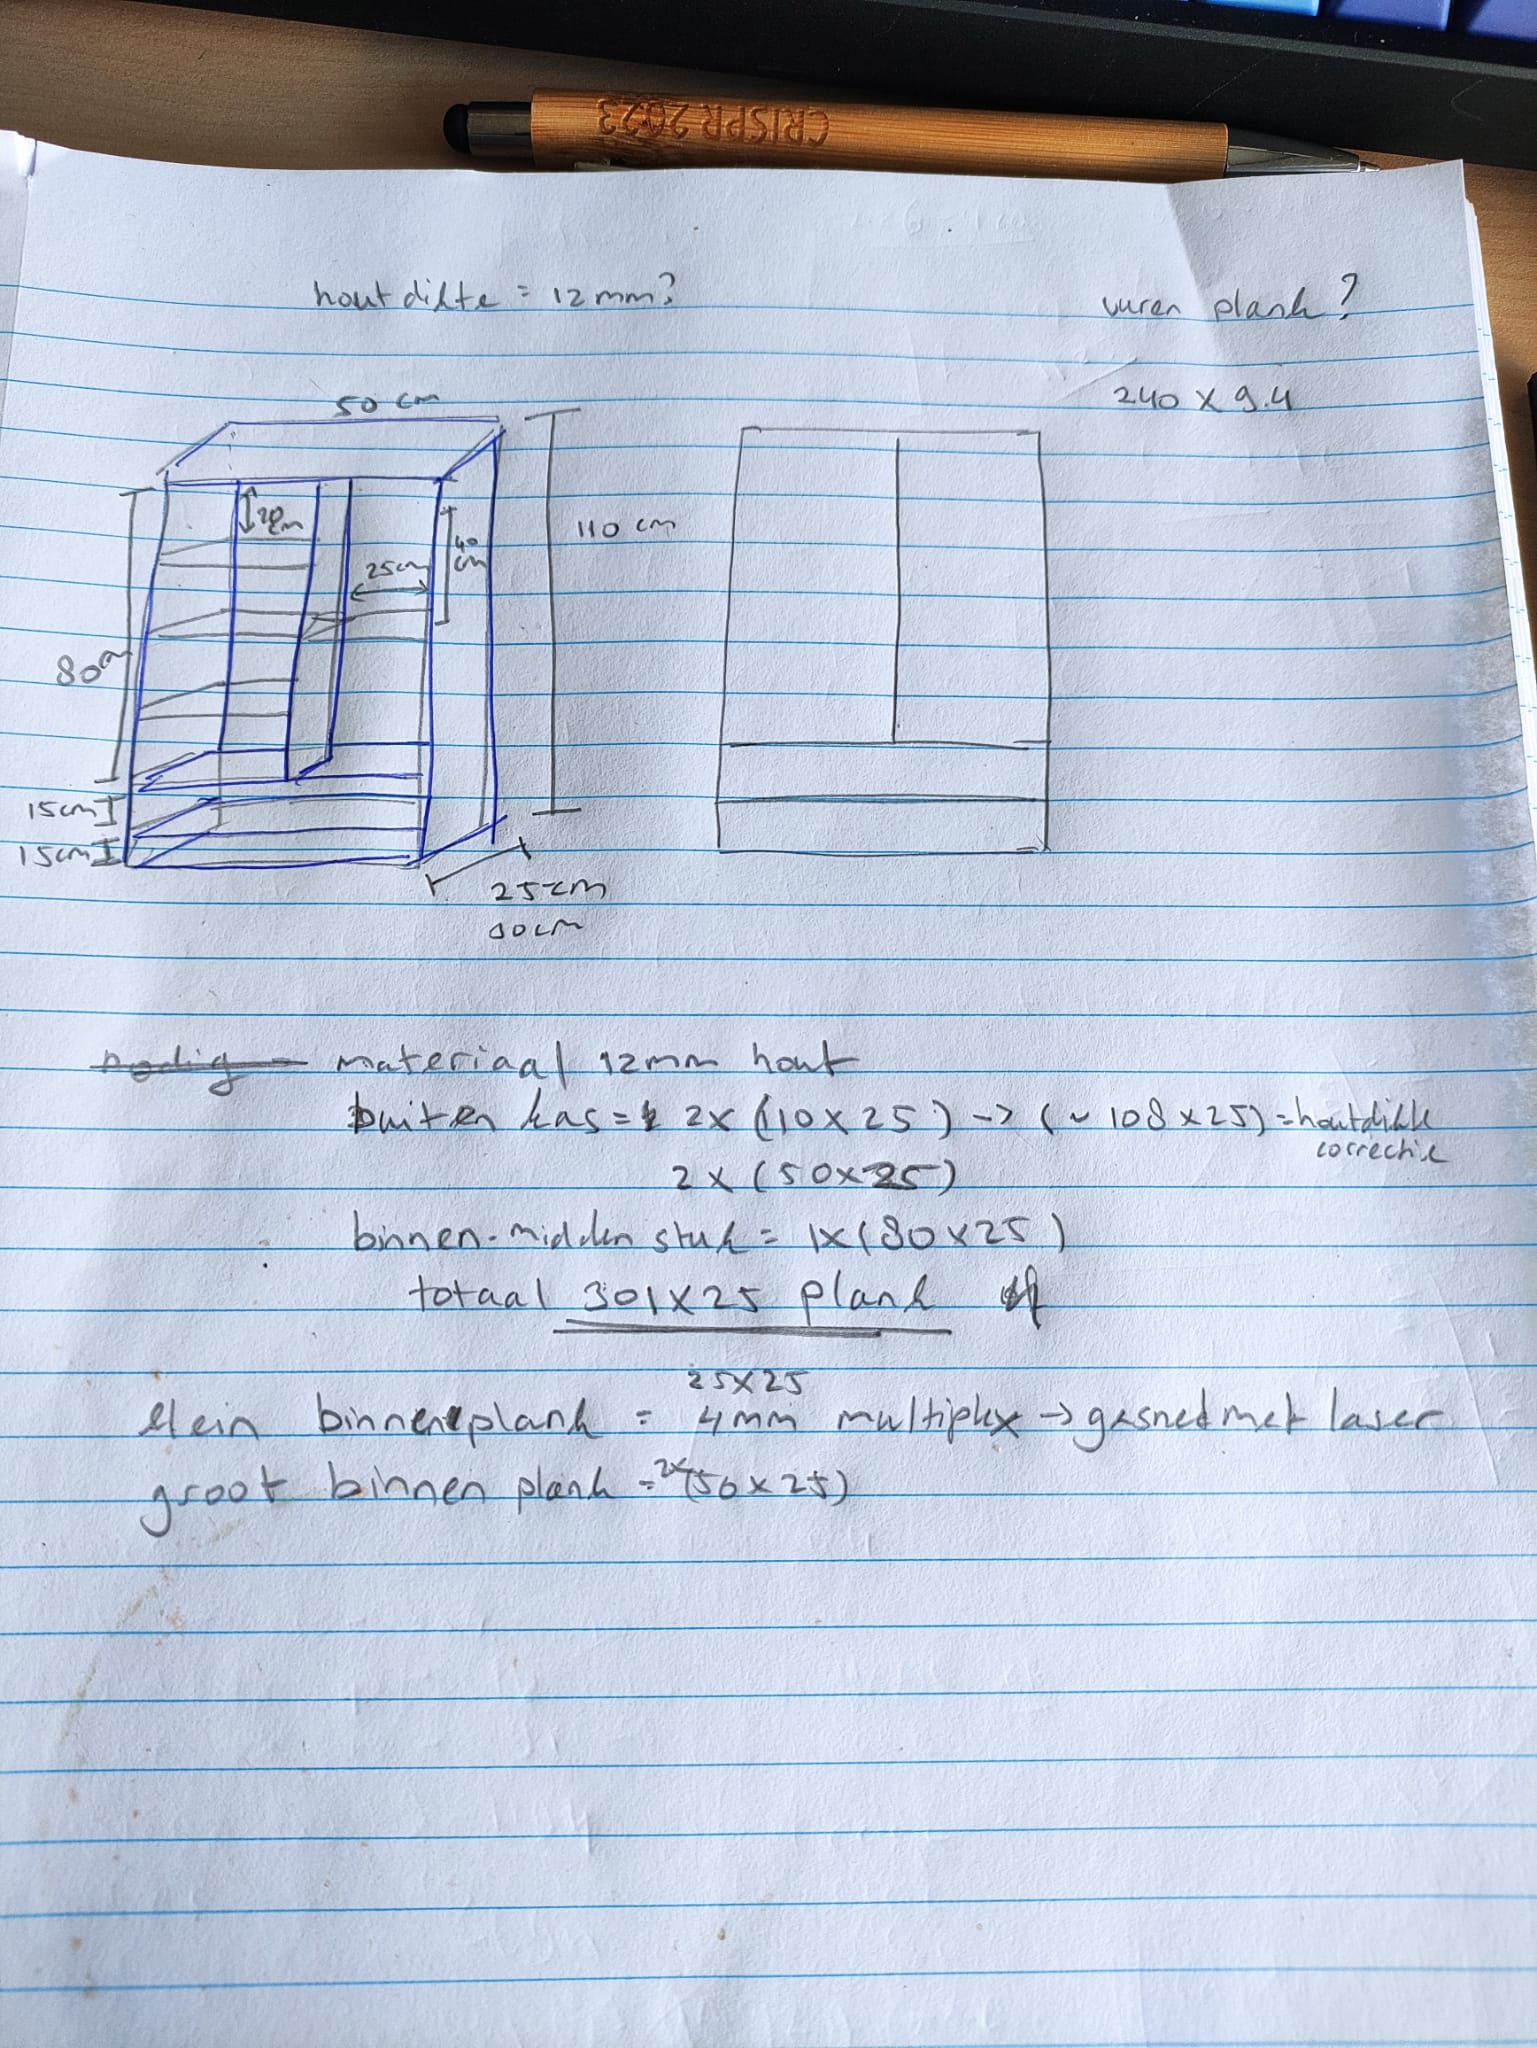 CRISPR 2023
hout dikte = 12 mm?
vuren plank?
240 x 9.4
50 cm
20 cm
40 cm
110 cm
25 cm
80 cm
15 cm
15 cm
25 cm
materiaal 12mm hout
buiten kas = 2x (110 x 25) -> (~ 108 x 25) = houtdikte
correctie
2 x (50 x 25)
binnen-midden stuk = 1x (80 x 25)
totaal 301 x 25 plank
25 x 25
klein binnenplank = 4 mm multiplex -> gesned met laser
groot binnen plank = 2x (50 x 25)